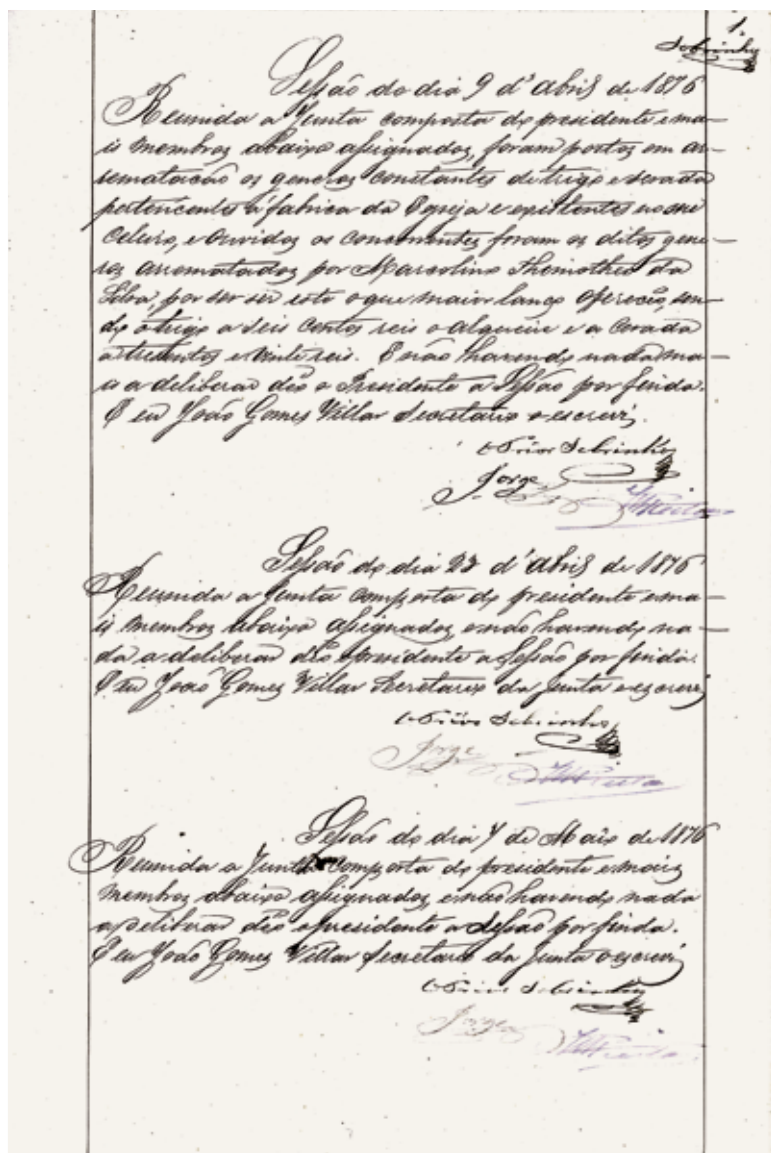 1.
Sobrinho
Sessão do dia 9 d'abril de 1876
Reunida a Junta composta do presidente e ma-
is membros abaixo assignados, foram postos em ar-
rematacão os generos constantes de trigo e sevada
pertencentes á fabrica da Egreja e existentes no seu
Celeiro, e ouvidos os concorrentes foram os ditos gene-
ros arrematados por Marcolino Thimotheo da
Silva, por ser ser este o que maior lanço offereceo, sen-
do o trigo a seis centos reis o alqueire e a cevada
a trezentos e vinte reis. E não havendo nada ma-
is a deliberar deo o Presidente a Sessão por finda.
E eu João Gomes Villar Secretario o escrevi.
O Prior Sobrinho
Jorge
Sessão do dia 22 d'abril de 1876
Reunida a Junta composta do presidente e ma-
is membros abaixo assignados, e não havendo na-
da a deliberar deo o presidente a Sessão por finda.
E eu João Gomes Villar Secretario da Junta o escrevi
O Prior Sobrinho
Jorge
Sessão do dia 7 de Maio de 1876
Reunida a Junta composta do presidente e mais
membros abaixo assignados, e não havendo nada
a deliberar deo o presidente a Sessão por finda.
E eu João Gomes Villar Secretario da Junta o escrevi
O Prior Sobrinho
Jorge